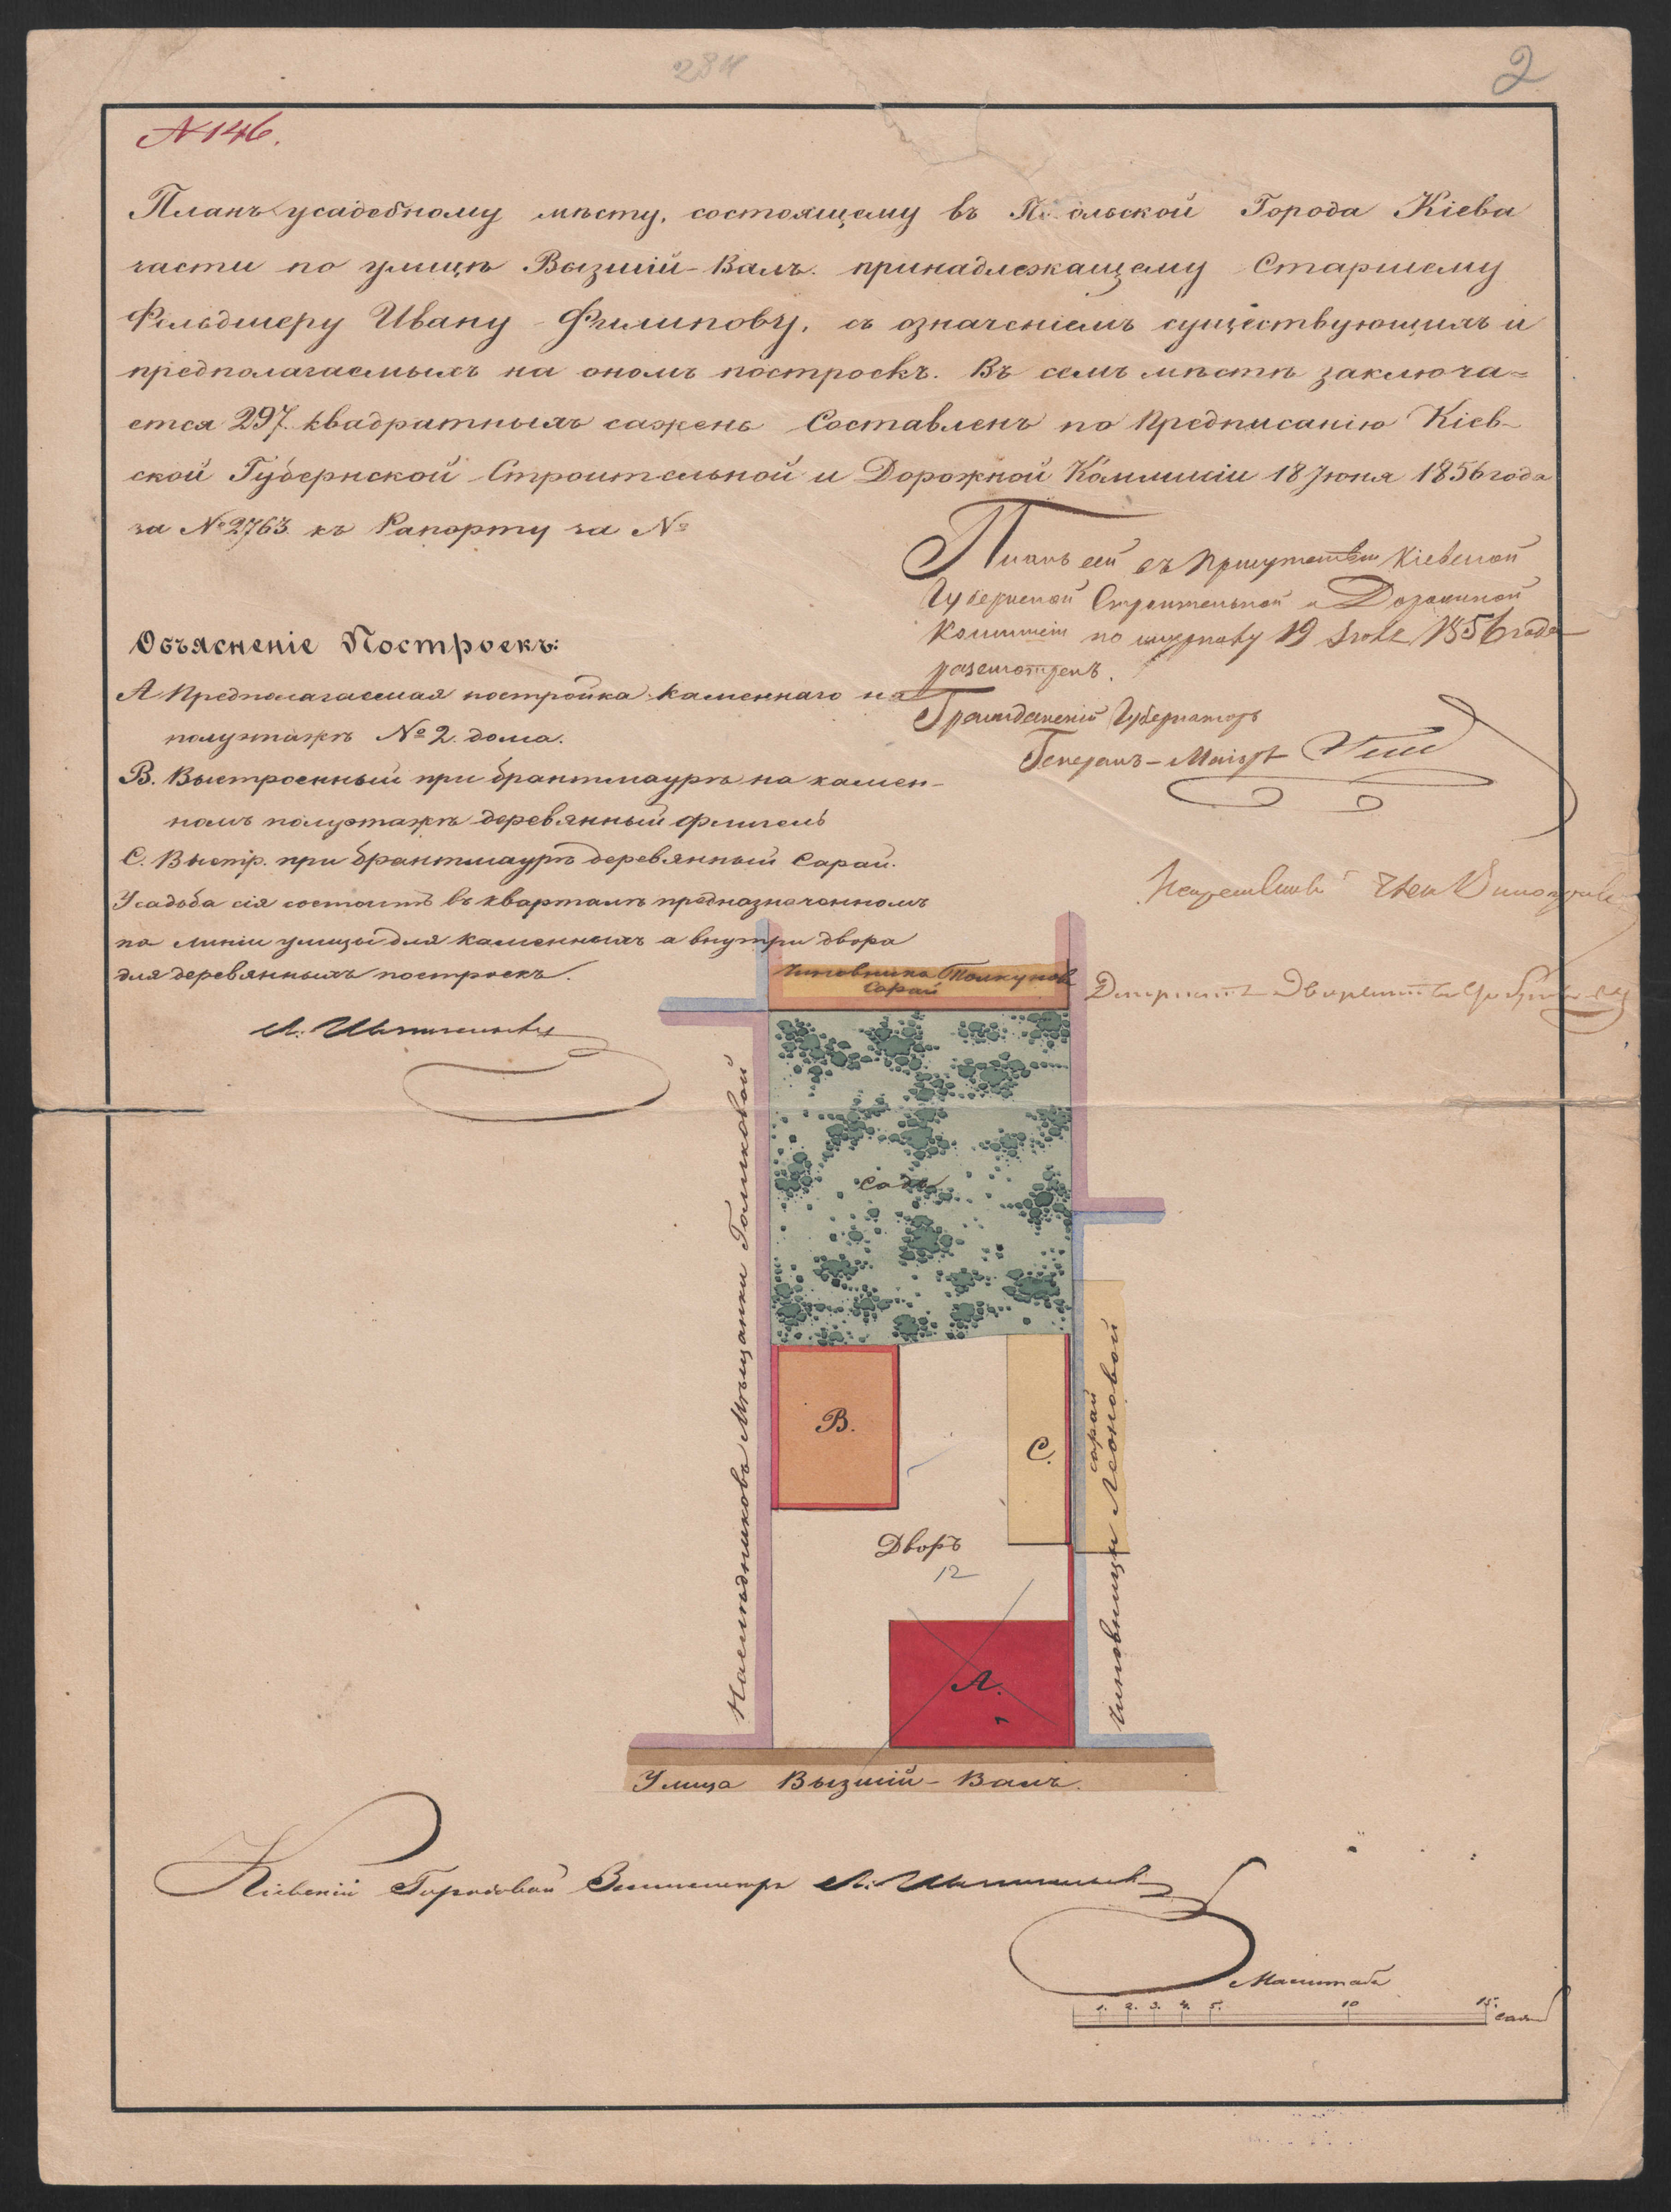 284
2
№ 146.
Планъ усадебному мѣсту, состоящему въ Подольской Города Кіева
части по улицѣ Вызшій-Валъ. принадлежащему Старшему
Фельдшеру Ивану Филипову, съ означеніемъ существующихъ и
предполагаемыхъ на ономъ построекъ. Въ семъ мѣстѣ заключа=
ется 297 квадратныхъ сажень Составленъ по Предписанію Кіев-
ской Губернской Строительной и Дорожной Коммисіи 18 Іюня 1856 года
за № 2763 къ Рапорту за №
Планъ сей въ Присутствіи Кіевской
Губернской Строительной и Дорожной
Коммисіи по журналу 19 Іюля 1856 года
разсмотренъ.
Гражданскій Губернаторъ
Генералъ-Маіоръ
Объясненіе Построекъ:
А Предполагаемая постройка каменнаго на
полуэтажѣ № 2. дома.
В. Выстроенный при брантмаурѣ на камен-
номъ полуэтажѣ деревянный флигель
С. Выстр. при брантмаурѣ деревянный Сарай.
Усадьба сія состоитъ въ кварталѣ предназначенномъ
по линіи улицы для каменныхъ а внутри двора
для деревянныхъ построекъ.
Непремѣнный Членъ
Депутатъ Дворянства
Чиновника Толкунова
Сарай
садъ
Наслѣдниковъ Мѣщанки Голиковой
В.
С.
сарай
Чиновницы Леоновой
Дворъ
12
А.
Улица Вызшій-Валъ.
Кіевскій Городовой Землемѣръ
Масштабъ
1. 2. 3. 4. 5. 10 15. саж